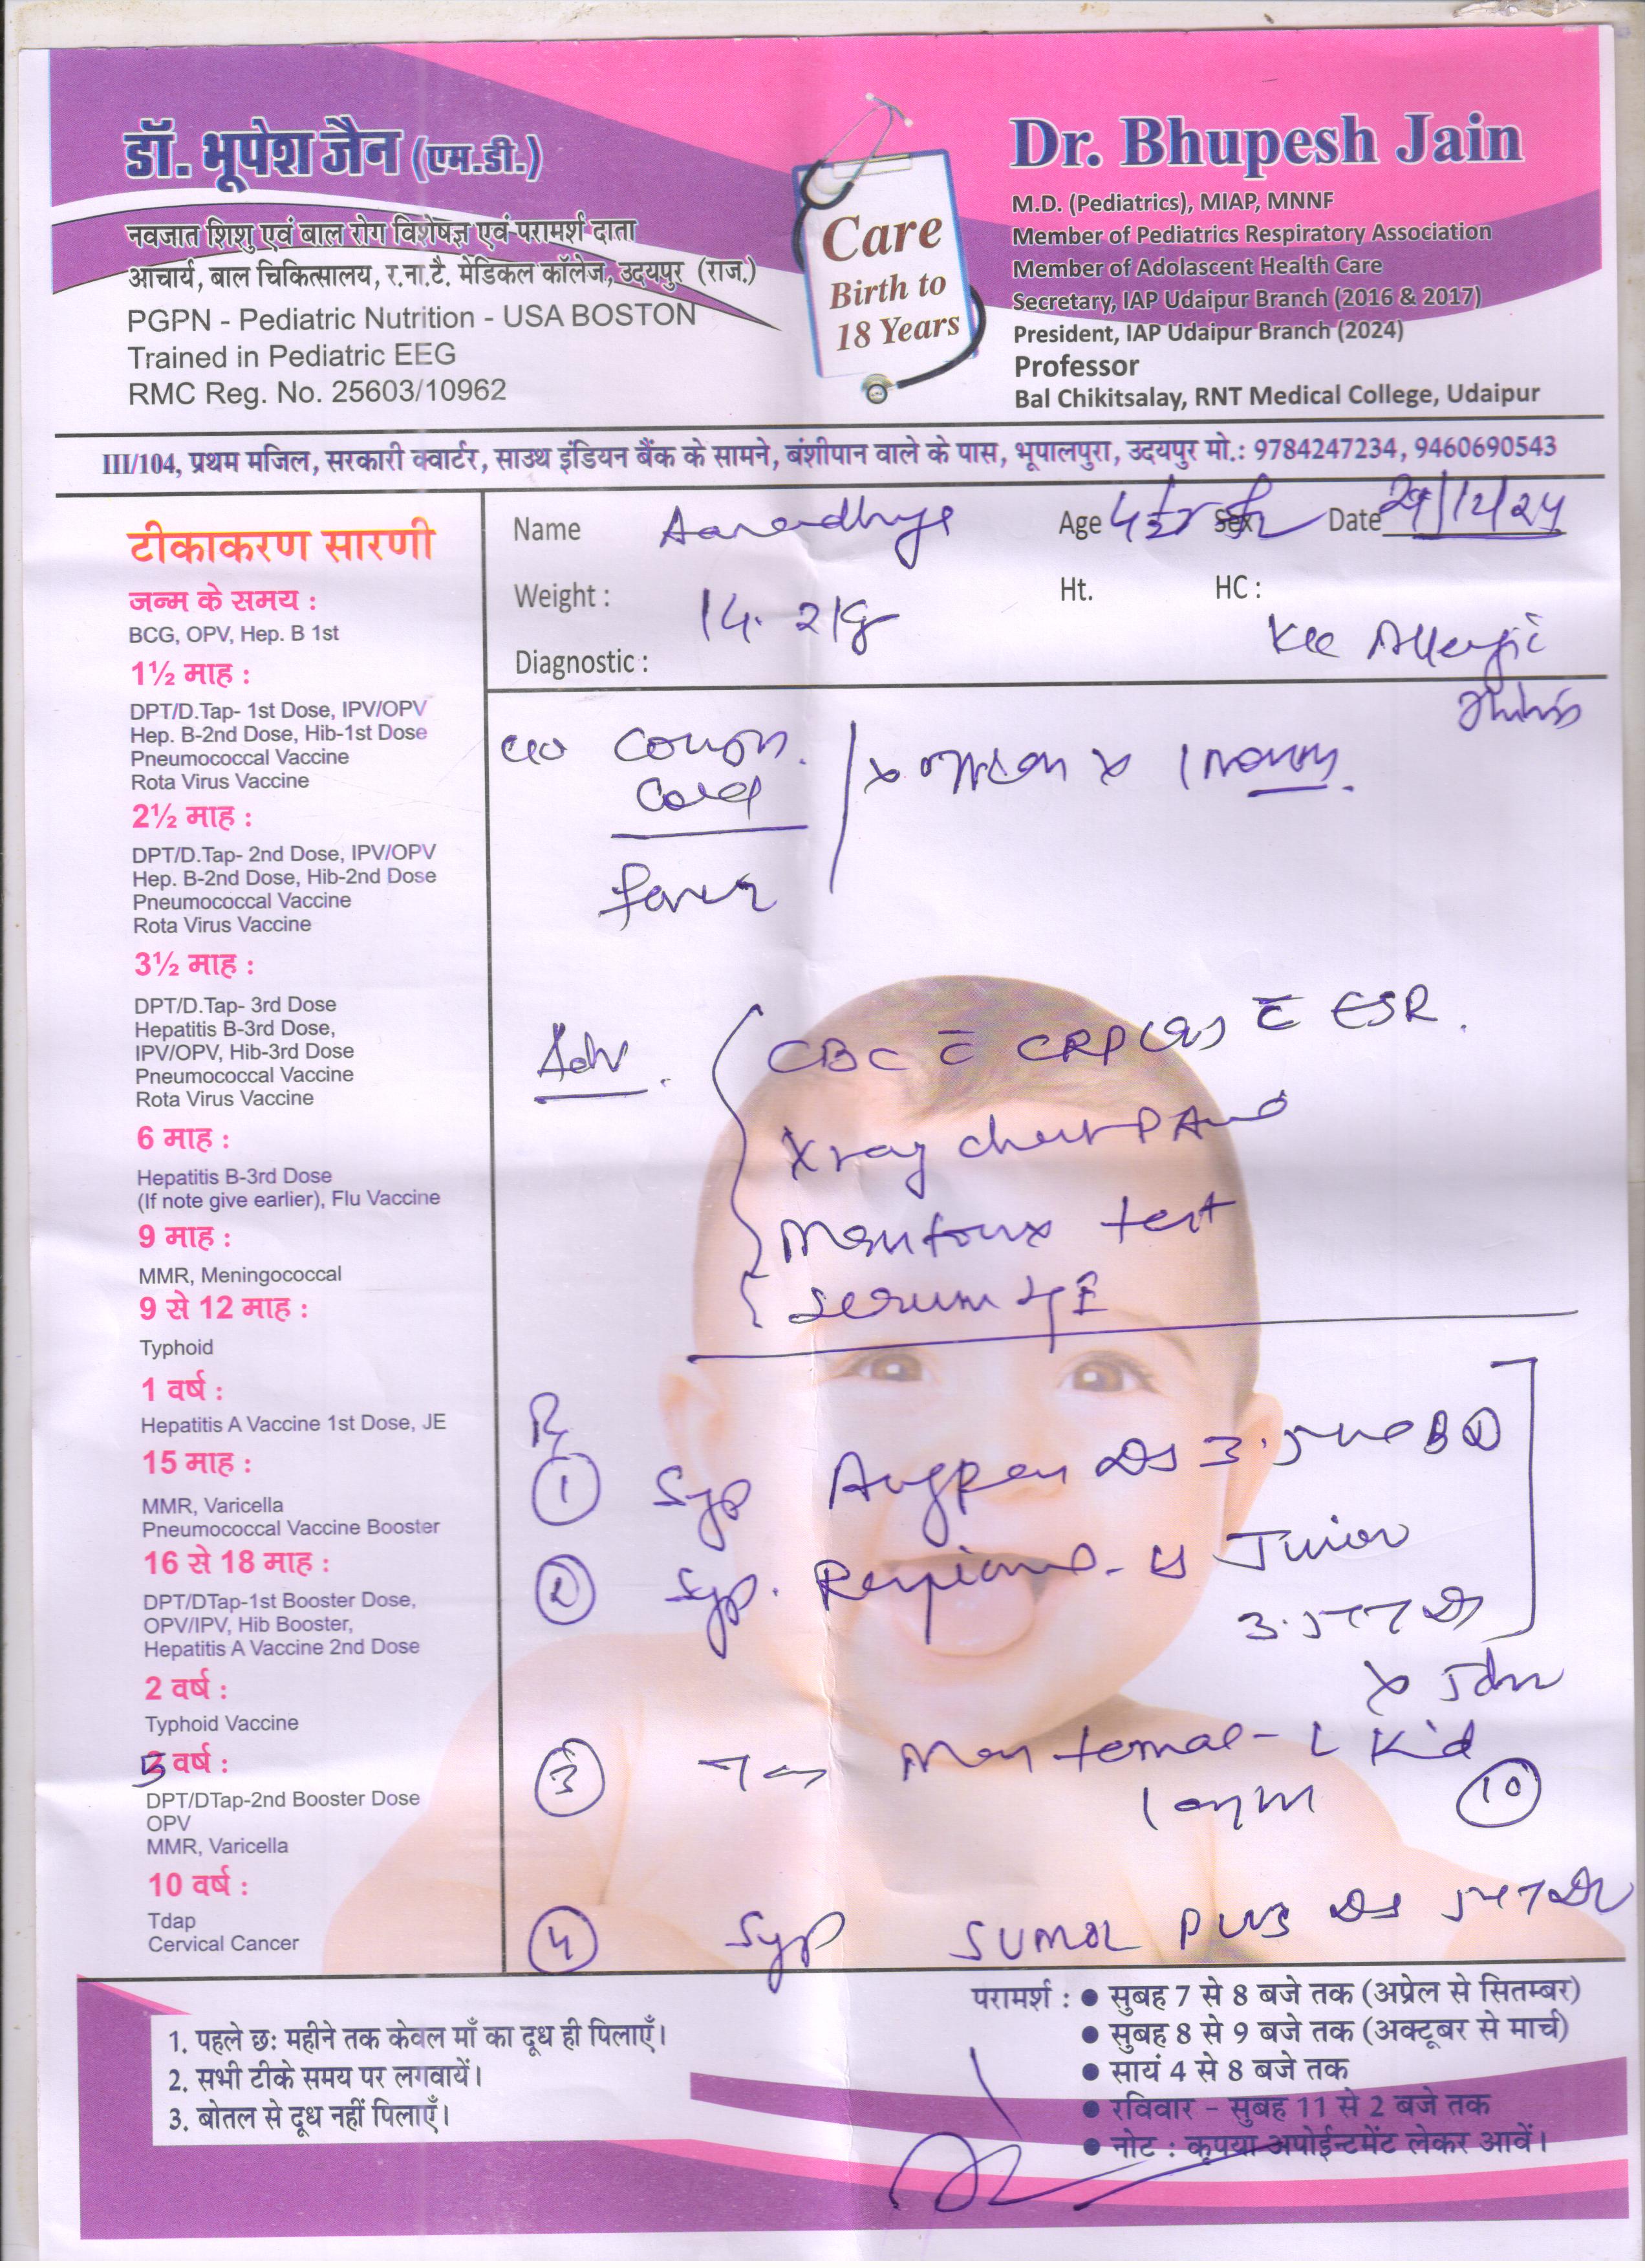 डॉ. भूपेश जैन (एम.डी.)
नवजात शिशु एवं बाल रोग विशेषज्ञ एवं परामर्श दाता
आचार्य, बाल चिकित्सालय, र.ना.टै. मेडिकल कॉलेज, उदयपुर (राज.)
PGPN - Pediatric Nutrition - USA BOSTON
Trained in Pediatric EEG
RMC Reg. No. 25603/10962
Care
Birth to
18 Years
Dr. Bhupesh Jain
M.D. (Pediatrics), MIAP, MNNF
Member of Pediatrics Respiratory Association
Member of Adolascent Health Care
Secretary, IAP Udaipur Branch (2016 & 2017)
President, IAP Udaipur Branch (2024)
Professor
Bal Chikitsalay, RNT Medical College, Udaipur
III/104, प्रथम मजिल, सरकारी क्वार्टर, साउथ इंडियन बैंक के सामने, बंशीपान वाले के पास, भूपालपुरा, उदयपुर मो.: 9784247234, 9460690543
टीकाकरण सारणी
जन्म के समय :
BCG, OPV, Hep. B 1st
1½ माह :
DPT/D.Tap- 1st Dose, IPV/OPV
Hep. B-2nd Dose, Hib-1st Dose
Pneumococcal Vaccine
Rota Virus Vaccine
2½ माह :
DPT/D.Tap- 2nd Dose, IPV/OPV
Hep. B-2nd Dose, Hib-2nd Dose
Pneumococcal Vaccine
Rota Virus Vaccine
3½ माह :
DPT/D.Tap- 3rd Dose
Hepatitis B-3rd Dose,
IPV/OPV, Hib-3rd Dose
Pneumococcal Vaccine
Rota Virus Vaccine
6 माह :
Hepatitis B-3rd Dose
(If note give earlier), Flu Vaccine
9 माह :
MMR, Meningococcal
9 से 12 माह :
Typhoid
1 वर्ष :
Hepatitis A Vaccine 1st Dose, JE
15 माह :
MMR, Varicella
Pneumococcal Vaccine Booster
16 से 18 माह :
DPT/DTap-1st Booster Dose,
OPV/IPV, Hib Booster,
Hepatitis A Vaccine 2nd Dose
2 वर्ष :
Typhoid Vaccine
5 वर्ष :
DPT/DTap-2nd Booster Dose
OPV
MMR, Varicella
10 वर्ष :
Tdap
Cervical Cancer
Name Aaradhya Age Sex Date 29/12/24
Weight : 14.2 kg Ht. HC :
Diagnostic : Allergic
c/o cough.
cold
x 1 month.
fever
Adv.
CBC c̄ CRP (qs) c̄ ESR.
X ray chest PA
Mantoux test
Serum IgE
Rx
① Syp Augpen DS 3.5 ml BD
② Syp. Junior
3.5
x 5
③ Montemac-L Kid
⑩
④ Syp SUMOL PLUS DS
1. पहले छः महीने तक केवल माँ का दूध ही पिलाएँ।
2. सभी टीके समय पर लगवायें।
3. बोतल से दूध नहीं पिलाएँ।
परामर्श : ● सुबह 7 से 8 बजे तक (अप्रेल से सितम्बर)
● सुबह 8 से 9 बजे तक (अक्टूबर से मार्च)
● सायं 4 से 8 बजे तक
● रविवार - सुबह 11 से 2 बजे तक
● नोट : कृपया अपोईन्टमेंट लेकर आवें।